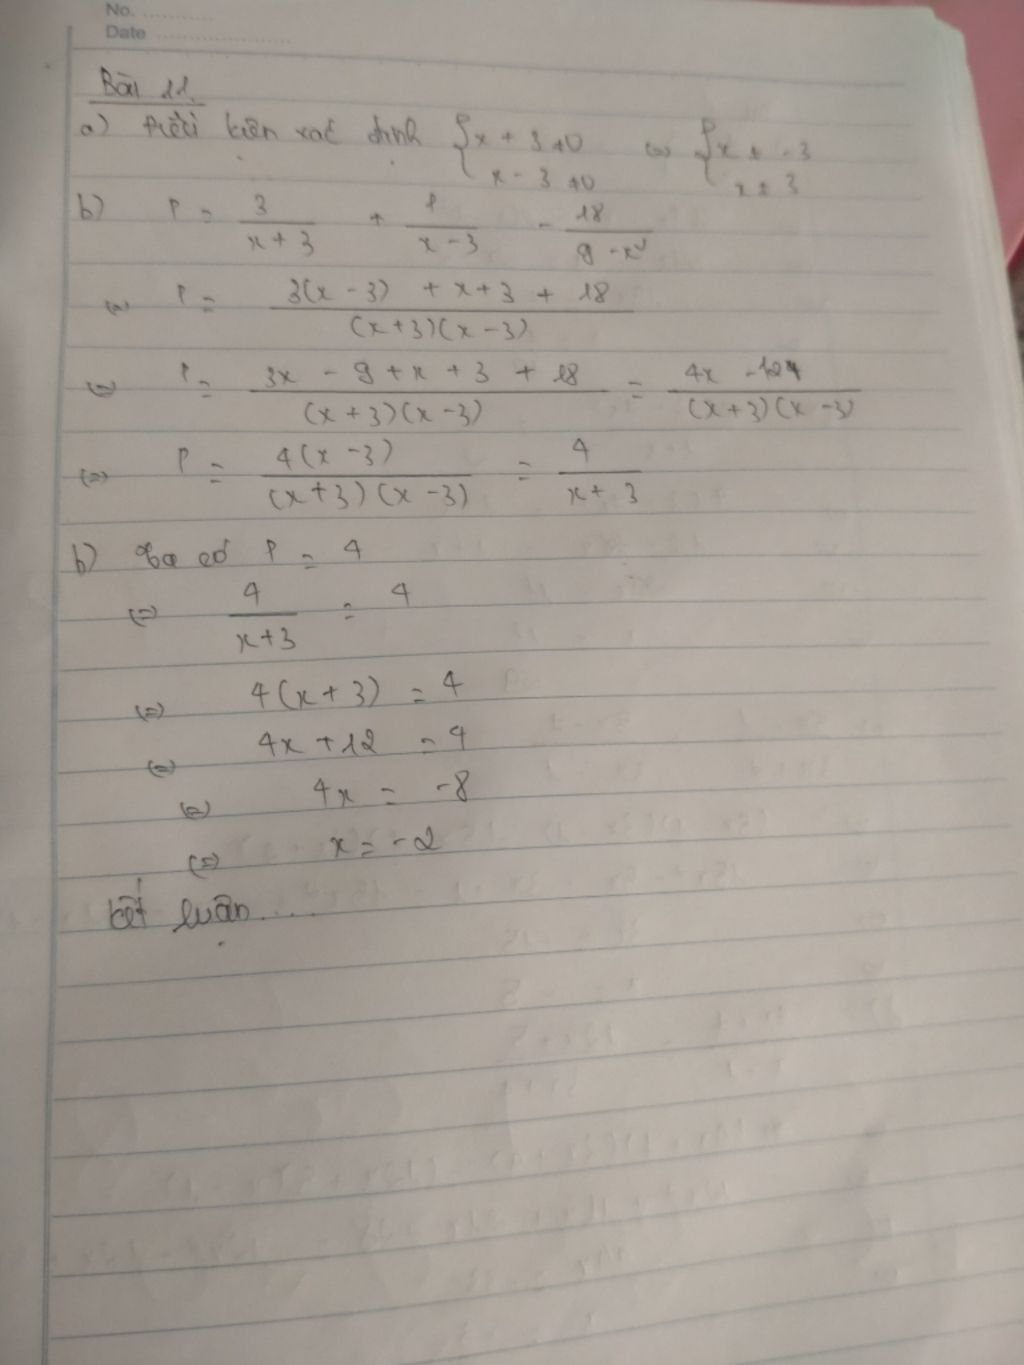 No. ............
Date ......................
Bài 11.
a) Điều kiện xác định { x + 3 ≠ 0 ⇔ { x ≠ -3
x - 3 ≠ 0 x ≠ 3
b) P = 3/(x + 3) + 1/(x - 3) - 18/(9 - x²)
(=) P = (3(x - 3) + x + 3 + 18)/((x+3)(x - 3))
(=) P = (3x - 9 + x + 3 + 18)/((x + 3)(x - 3)) = (4x - 12)/((x+3)(x - 3))
(=) P = 4(x - 3)/((x+3)(x - 3)) = 4/(x + 3)
b) Ta có P = 4
(=) 4/(x+3) = 4
(=) 4(x + 3) = 4
(=) 4x + 12 = 4
(=) 4x = -8
(=) x = -2
kết luận....